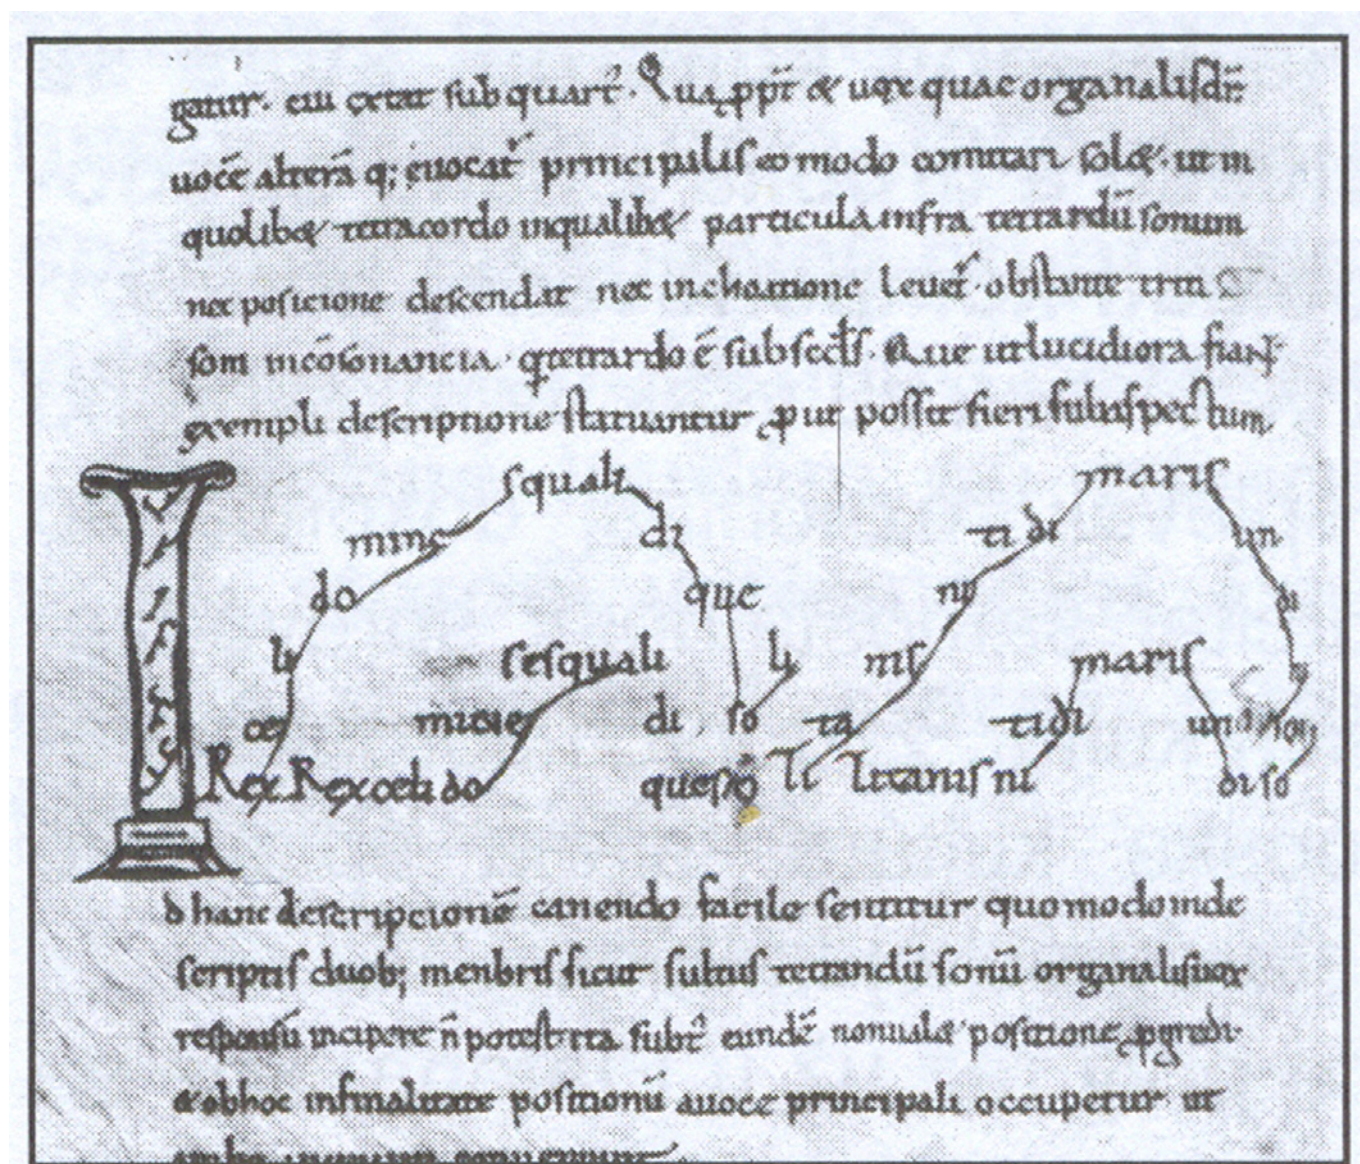 gatur. eui extat sub quart̄. Quapp̄t & uox quae organalis dr̄
uocē alterā q; euocat̄ principalis eo modo comitari sol&. ut in
quolib& tetracordo inqualib& particula infra tetrardū sonum
nec posicione descendat nec inchoatione leuet̄. obstante trita
soni incōsonancia. q tetrardo ē subsecds. Que ut lucidiora fiant
exempli descriptione statuantur p ut possit fieri sub aspectum.
squali maris
mine di ti di un
do que ni di
li sesquali li nis maris
cæ micie di so ta tidi und soli
Rex Rex cœli do ques li li tanis ni di so
d hanc descripcionē canendo facile sentitur quomodo inde
scriptis duob; menbris sicut subtus tetrardū sonū organalis uox
responsū incipere n̄ potest ita subt̄ eundē nonuale& positione pgredi
& obhoc infinalitate positionū auoce principali occupetur ut